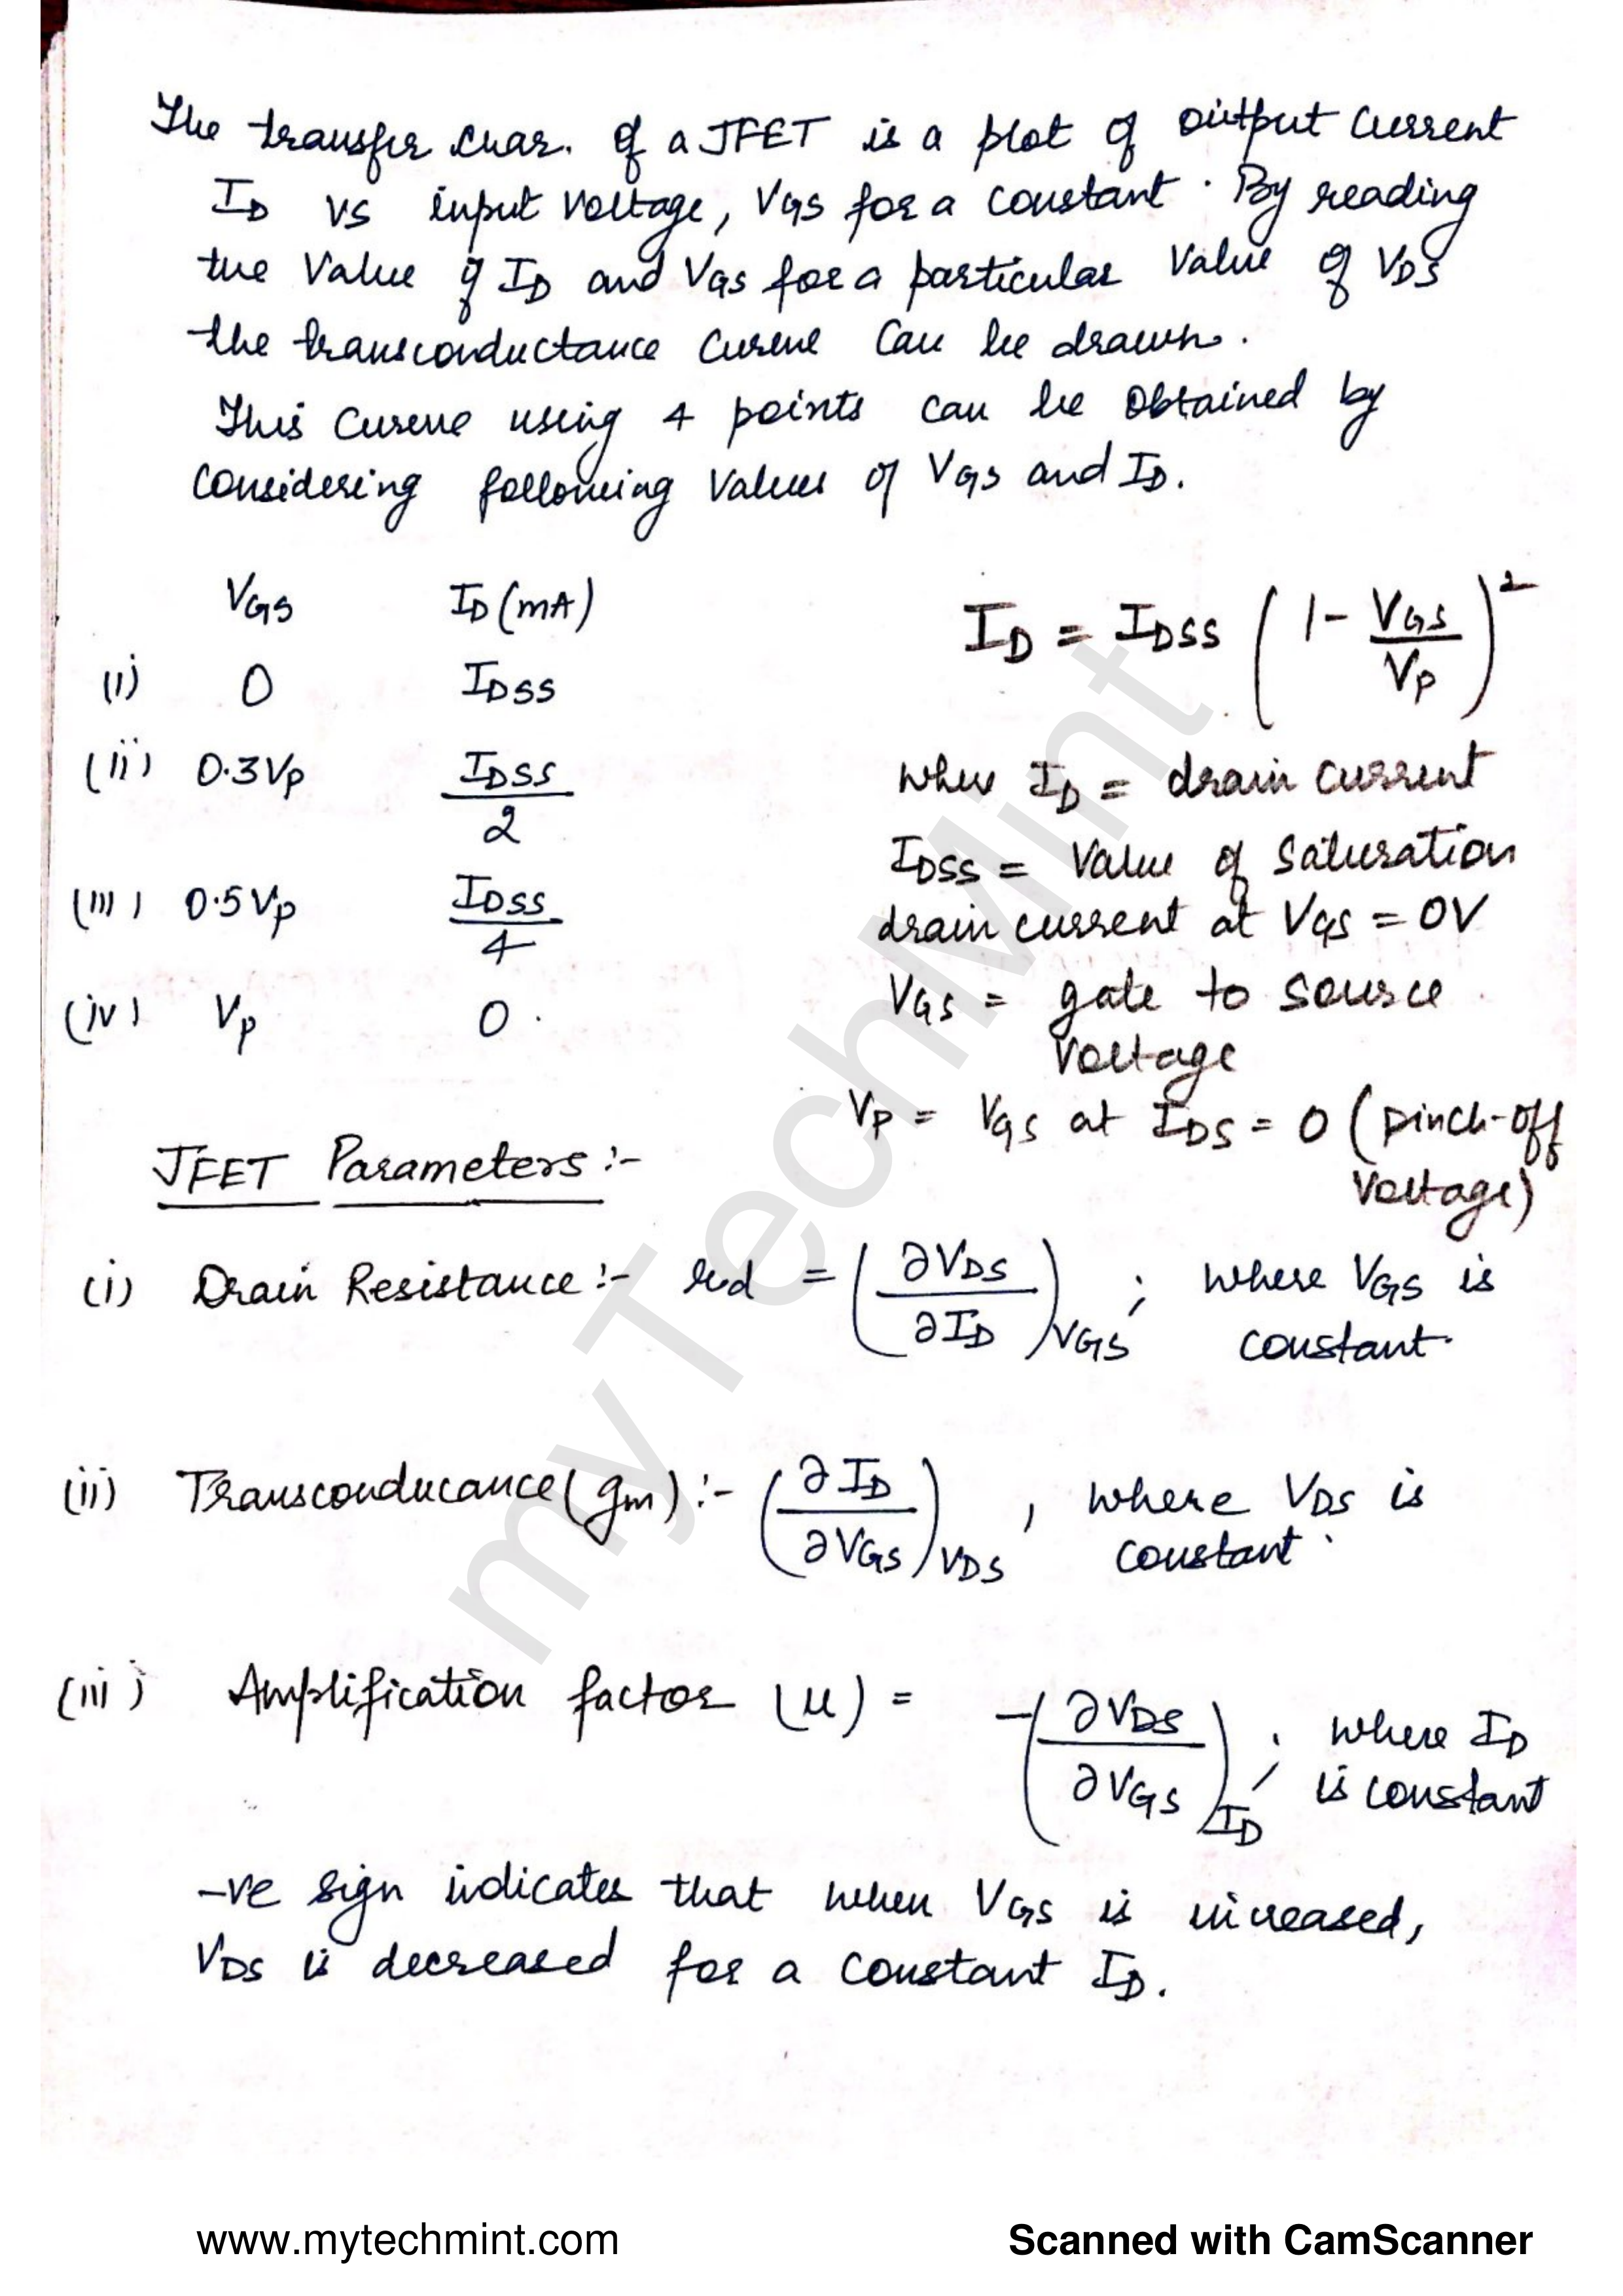 The transfer char. of a JFET is a plot of output current
ID vs input voltage, VGS for a constant. By reading
the value of ID and VGS for a particular value of VDS
the transconductance curve can be drawn.
This curve using 4 points can be obtained by
considering following values of VGS and ID.
VGS ID (mA)
(i) 0 IDSS
(ii) 0.3VP IDSS/2
(iii) 0.5VP IDSS/4
(iv) VP 0.
ID = IDSS (1 - VGS/VP)²
when ID = drain current
IDSS = Value of saturation
drain current at VGS = 0V
VGS = gate to source
voltage
VP = VGS at IDS = 0 (pinch-off
voltage)
JFET Parameters :-
(i) Drain Resistance :- rd = (∂VDS/∂ID)VGS ; where VGS is
constant.
(ii) Transconducance (gm) :- (∂ID/∂VGS)VDS , where VDS is
constant.
(iii) Amplification factor (μ) = -(∂VDS/∂VGS)ID ; where ID
is constant
-ve sign indicates that when VGS is increased,
VDS is decreased for a constant ID.
myTechMint
www.mytechmint.com
Scanned with CamScanner